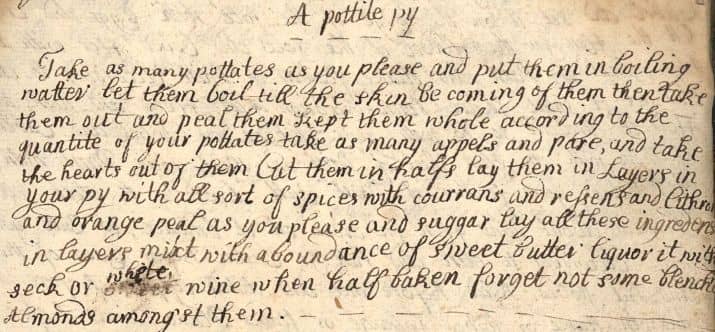 A pottile py
Take as many pottates as you please and put them in boiling
watter let them boil till the skin be coming of them then take
them out and peal them kept them whole according to the
quantite of your pottates take as many appels and pare, and take
the hearts out of them Cut them in halfs lay them in Layers in
your py with all sort of spices with courrans and resens and Cithron
and orange peal as you please and suggar lay all these ingredens
in layers mixt with aboundance of sweet butter liquor it with
seck or white wine when half baken forget not some blench
Almonds amongst them.